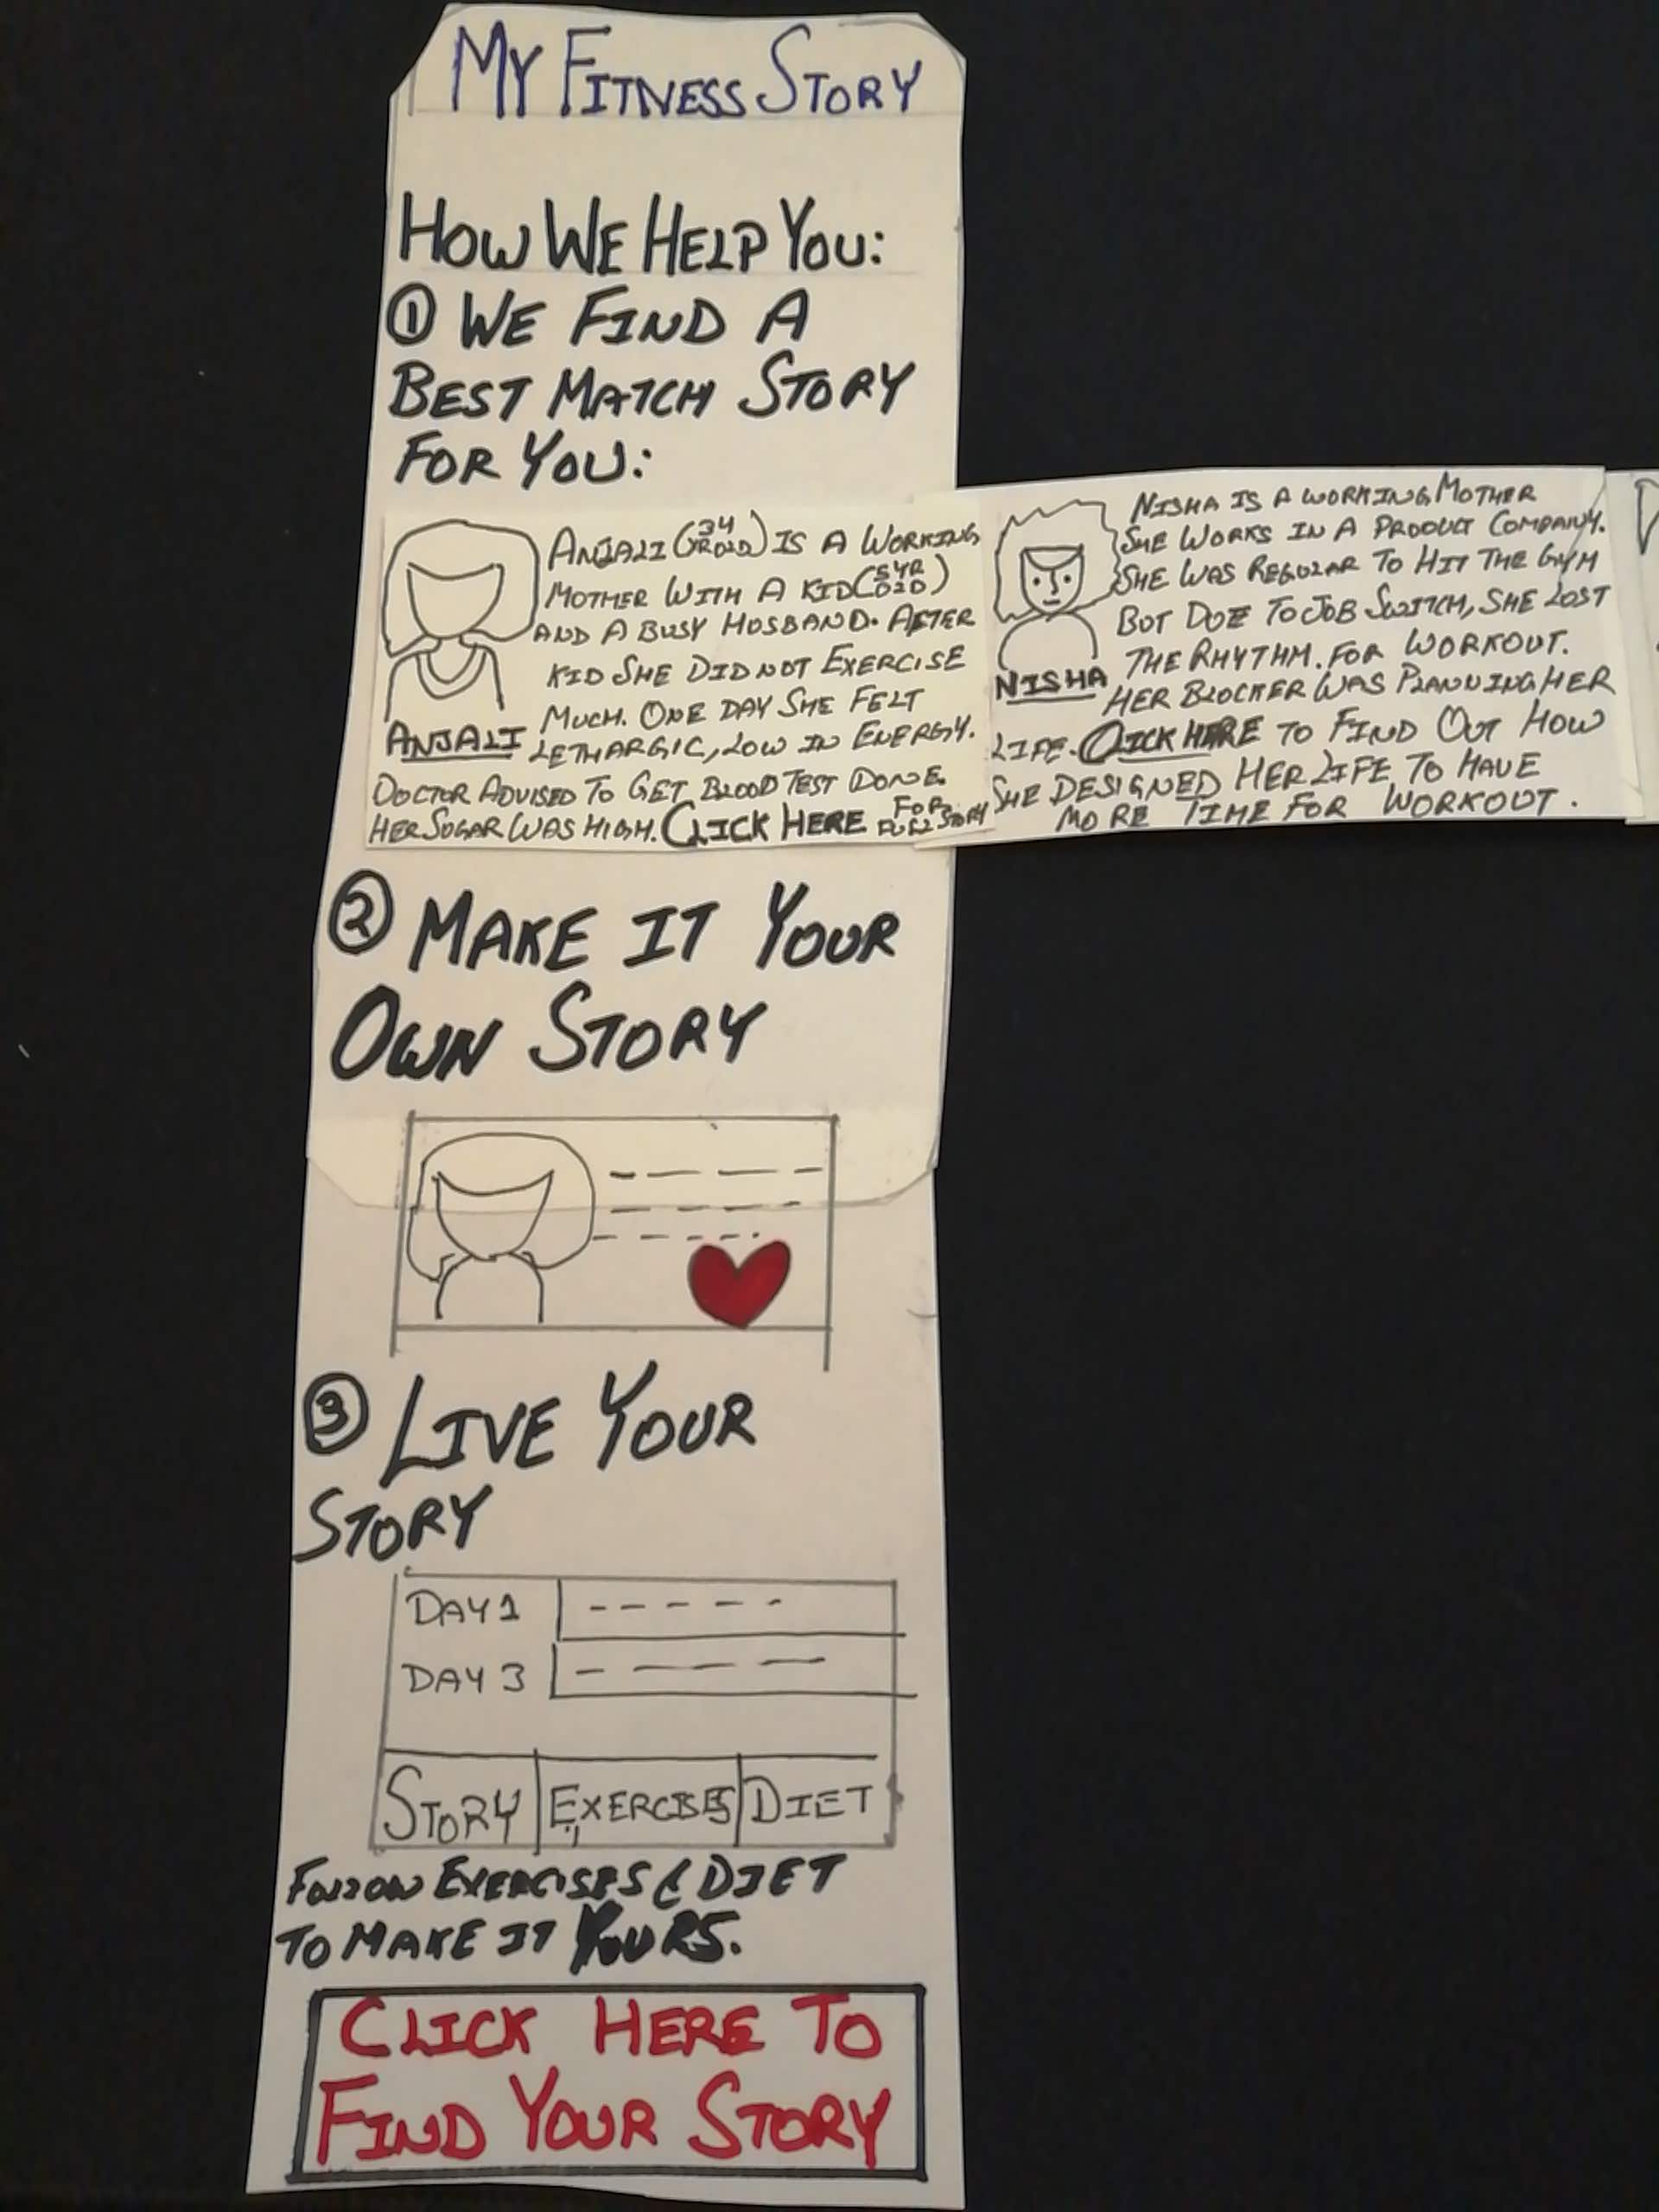 MY FITNESS STORY
HOW WE HELP YOU:
① WE FIND A
BEST MATCH STORY
FOR YOU:
ANJALI (34 YR OLD) IS A WORKING
MOTHER WITH A KID (5 YR OLD)
AND A BUSY HUSBAND. AFTER
KID SHE DID NOT EXERCISE
MUCH. ONE DAY SHE FELT
LETHARGIC, LOW IN ENERGY.
DOCTOR ADVISED TO GET BLOOD TEST DONE.
HER SUGAR WAS HIGH. CLICK HERE FOR FULL STORY
ANJALI
NISHA IS A WORKING MOTHER
SHE WORKS IN A PRODUCT COMPANY.
SHE WAS REGULAR TO HIT THE GYM
BUT DUE TO JOB SWITCH, SHE LOST
THE RHYTHM. FOR WORKOUT.
HER BLOCKER WAS PLANNING HER
LIFE. CLICK HERE TO FIND OUT HOW
SHE DESIGNED HER LIFE TO HAVE
MORE TIME FOR WORKOUT.
NISHA
② MAKE IT YOUR
OWN STORY
③ LIVE YOUR
STORY
DAY 1
DAY 3
STORY EXERCISES DIET
FOLLOW EXERCISES & DIET
TO MAKE IT YOURS.
CLICK HERE TO
FIND YOUR STORY